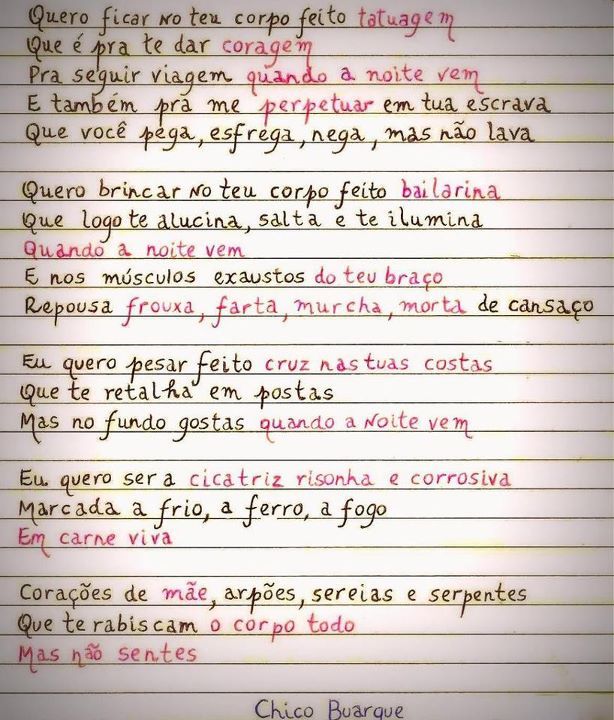 Quero ficar no teu corpo feito tatuagem
Que é pra te dar coragem
Pra seguir viagem quando a noite vem
E também pra me perpetuar em tua escrava
Que você pega, esfrega, nega, mas não lava
Quero brincar no teu corpo feito bailarina
Que logo te alucina, salta e te ilumina
Quando a noite vem
E nos músculos exaustos do teu braço
Repousa frouxa, farta, murcha, morta de cansaço
Eu quero pesar feito cruz nas tuas costas
Que te retalha em postas
Mas no fundo gostas quando a Noite vem
Eu quero ser a cicatriz risonha e corrosiva
Marcada a frio, a ferro, a fogo
Em carne viva
Corações de mãe, arpões, sereias e serpentes
Que te rabiscam o corpo todo
Mas não sentes
Chico Buarque